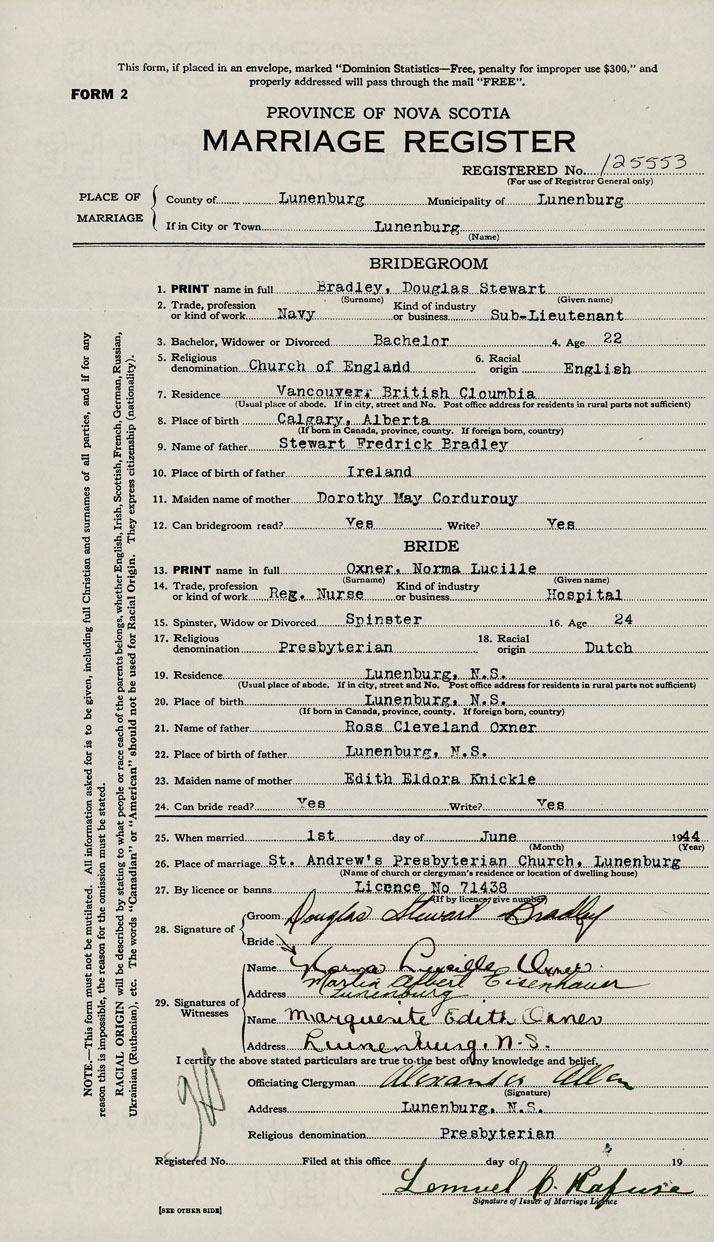 This form, if placed in an envelope, marked "Dominion Statistics—Free, penalty for improper use $300," and
properly addressed will pass through the mail "FREE".
FORM 2
PROVINCE OF NOVA SCOTIA
MARRIAGE REGISTER
REGISTERED No. 125553
(For use of Registrar General only)
PLACE OF MARRIAGE
County of Lunenburg Municipality of Lunenburg
If in City or Town Lunenburg
(Name)
BRIDEGROOM
1. PRINT name in full Bradley, Douglas Stewart
(Surname) (Given name)
2. Trade, profession or kind of work Navy Kind of industry or business Sub-Lieutenant
3. Bachelor, Widower or Divorced Bachelor 4. Age 22
5. Religious denomination Church of England 6. Racial origin English
7. Residence Vancouver, British Cloumbia
(Usual place of abode. If in city, street and No. Post office address for residents in rural parts not sufficient)
8. Place of birth Calgary, Alberta
(If born in Canada, province, county. If foreign born, country)
9. Name of father Stewart Fredrick Bradley
10. Place of birth of father Ireland
11. Maiden name of mother Dorothy May Cordurouy
12. Can bridegroom read? Yes Write? Yes
BRIDE
13. PRINT name in full Oxner, Norma Lucille
(Surname) (Given name)
14. Trade, profession or kind of work Reg. Nurse Kind of industry or business Hospital
15. Spinster, Widow or Divorced Spinster 16. Age 24
17. Religious denomination Presbyterian 18. Racial origin Dutch
19. Residence Lunenburg, N.S.
(Usual place of abode. If in city, street and No. Post office address for residents in rural parts not sufficient)
20. Place of birth Lunenburg, N.S.
(If born in Canada, province, county. If foreign born, country)
21. Name of father Ross Cleveland Oxner
22. Place of birth of father Lunenburg, N.S.
23. Maiden name of mother Edith Eldora Knickle
24. Can bride read? Yes Write? Yes
25. When married 1st day of June 1944
(Month) (Year)
26. Place of marriage St. Andrew's Presbyterian Church, Lunenburg
(Name of church or clergyman's residence or location of dwelling house)
27. By licence or banns Licence No 71438
(If by licence, give number)
28. Signature of
Groom Douglas Stewart Bradley
Bride
Norma Lucille Oxner
29. Signatures of Witnesses
Name Martin Albert Eisenhauer
Address Lunenburg
Name Marguerite Edith Oxner
Address Lunenburg, N.S.
I certify the above stated particulars are true to the best of my knowledge and belief.
Officiating Clergyman Alexander Allen
(Signature)
Address Lunenburg, N.S.
Religious denomination Presbyterian
Registered No. Filed at this office day of 19
Lemuel C. Rafuse
Signature of Issuer of Marriage Licence
[SEE OTHER SIDE]
NOTE.—This form must not be mutilated. All information asked for is to be given, including full Christian and surnames of all parties, and if for any
reason this is impossible, the reason for the omission must be stated.
RACIAL ORIGIN will be described by stating to what people or race each of the parents belongs, whether English, Irish, Scottish, French, German, Russian,
Ukrainian (Ruthenian), etc. The words "Canadian" or "American" should not be used for Racial Origin. They express citizenship (nationality).